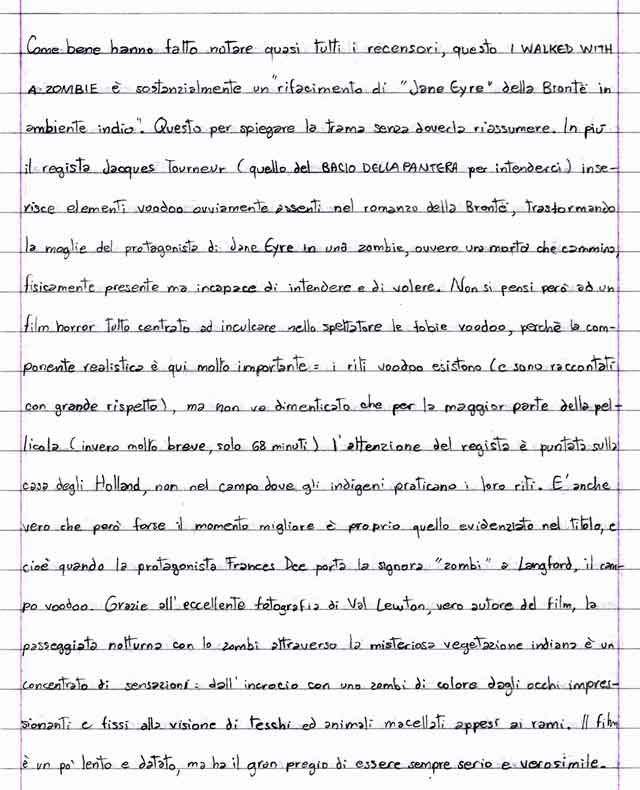 Come bene hanno fatto notare quasi tutti i recensori, questo I WALKED WITH
A ZOMBIE è sostanzialmente un "rifacimento di "Jane Eyre" della Brontë in
ambiente indio". Questo per spiegare la trama senza doverla riassumere. In più
il regista Jacques Tourneur (quello del BACIO DELLA PANTERA per intenderci) inse-
risce elementi voodoo ovviamente assenti nel romanzo della Brontë, trasformando
la moglie del protagonista di Jane Eyre in una zombie, ovvero una morta che cammina,
fisicamente presente ma incapace di intendere e di volere. Non si pensi però ad un
film horror tutto centrato ad inculcare nello spettatore le fobie voodoo, perchè la com-
ponente realistica è qui molto importante = i riti voodoo esistono (e sono raccontati
con grande rispetto), ma non va dimenticato che per la maggior parte della pel-
licola (invero molto breve, solo 68 minuti) l'attenzione del regista è puntata sulla
casa degli Holland, non nel campo dove gli indigeni praticano i loro riti. E' anche
vero che però forse il momento migliore è proprio quello evidenziato nel titolo, e
cioè quando la protagonista Frances Dee porta la signora "zombi" a Langford, il cam-
po voodoo. Grazie all'eccellente fotografia di Val Lewton, vero autore del film, la
passeggiata notturna con lo zombi attraverso la misteriosa vegetazione indiana è un
concentrato di sensazioni: dall'incrocio con uno zombi di colore dagli occhi impres-
sionanti e fissi alla visione di teschi ed animali macellati appesi ai rami. Il film
è un po' lento e datato, ma ha il gran pregio di essere sempre serio e verosimile.